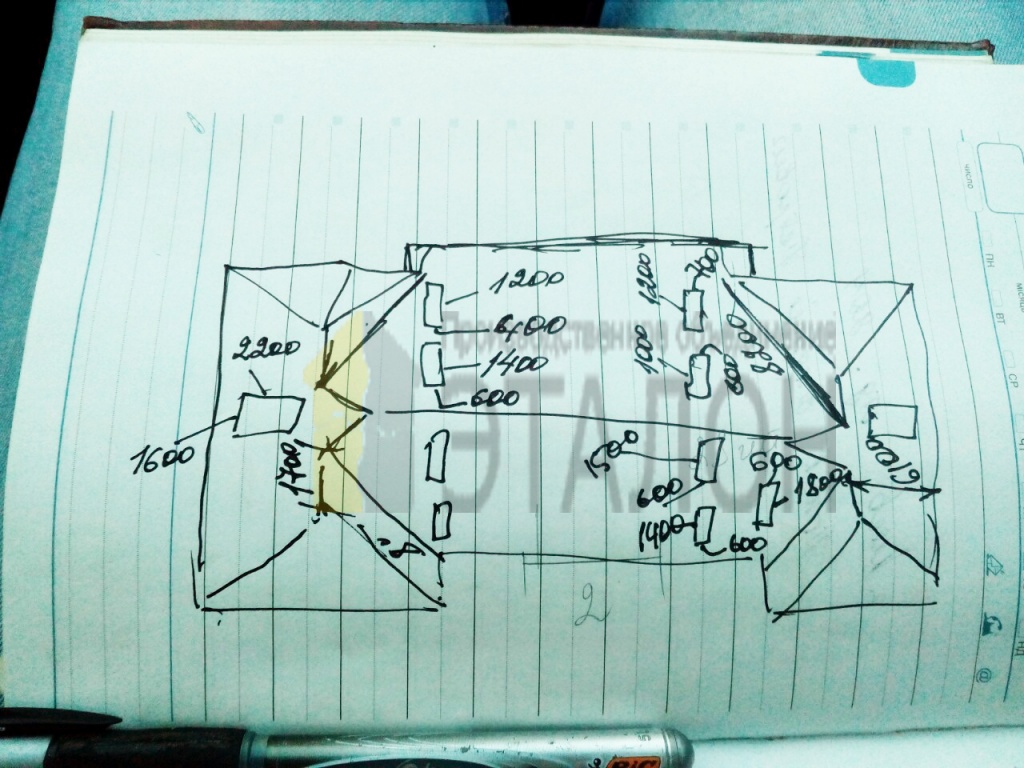 число
ПН
ВТ
СР
1200
400
1400
600
1200
400
1000
600
8200
2200
1600
1700
8
1500
600
1400
600
600
1800
6100
2
Производственное объединение
ЭТАЛОН
BIC